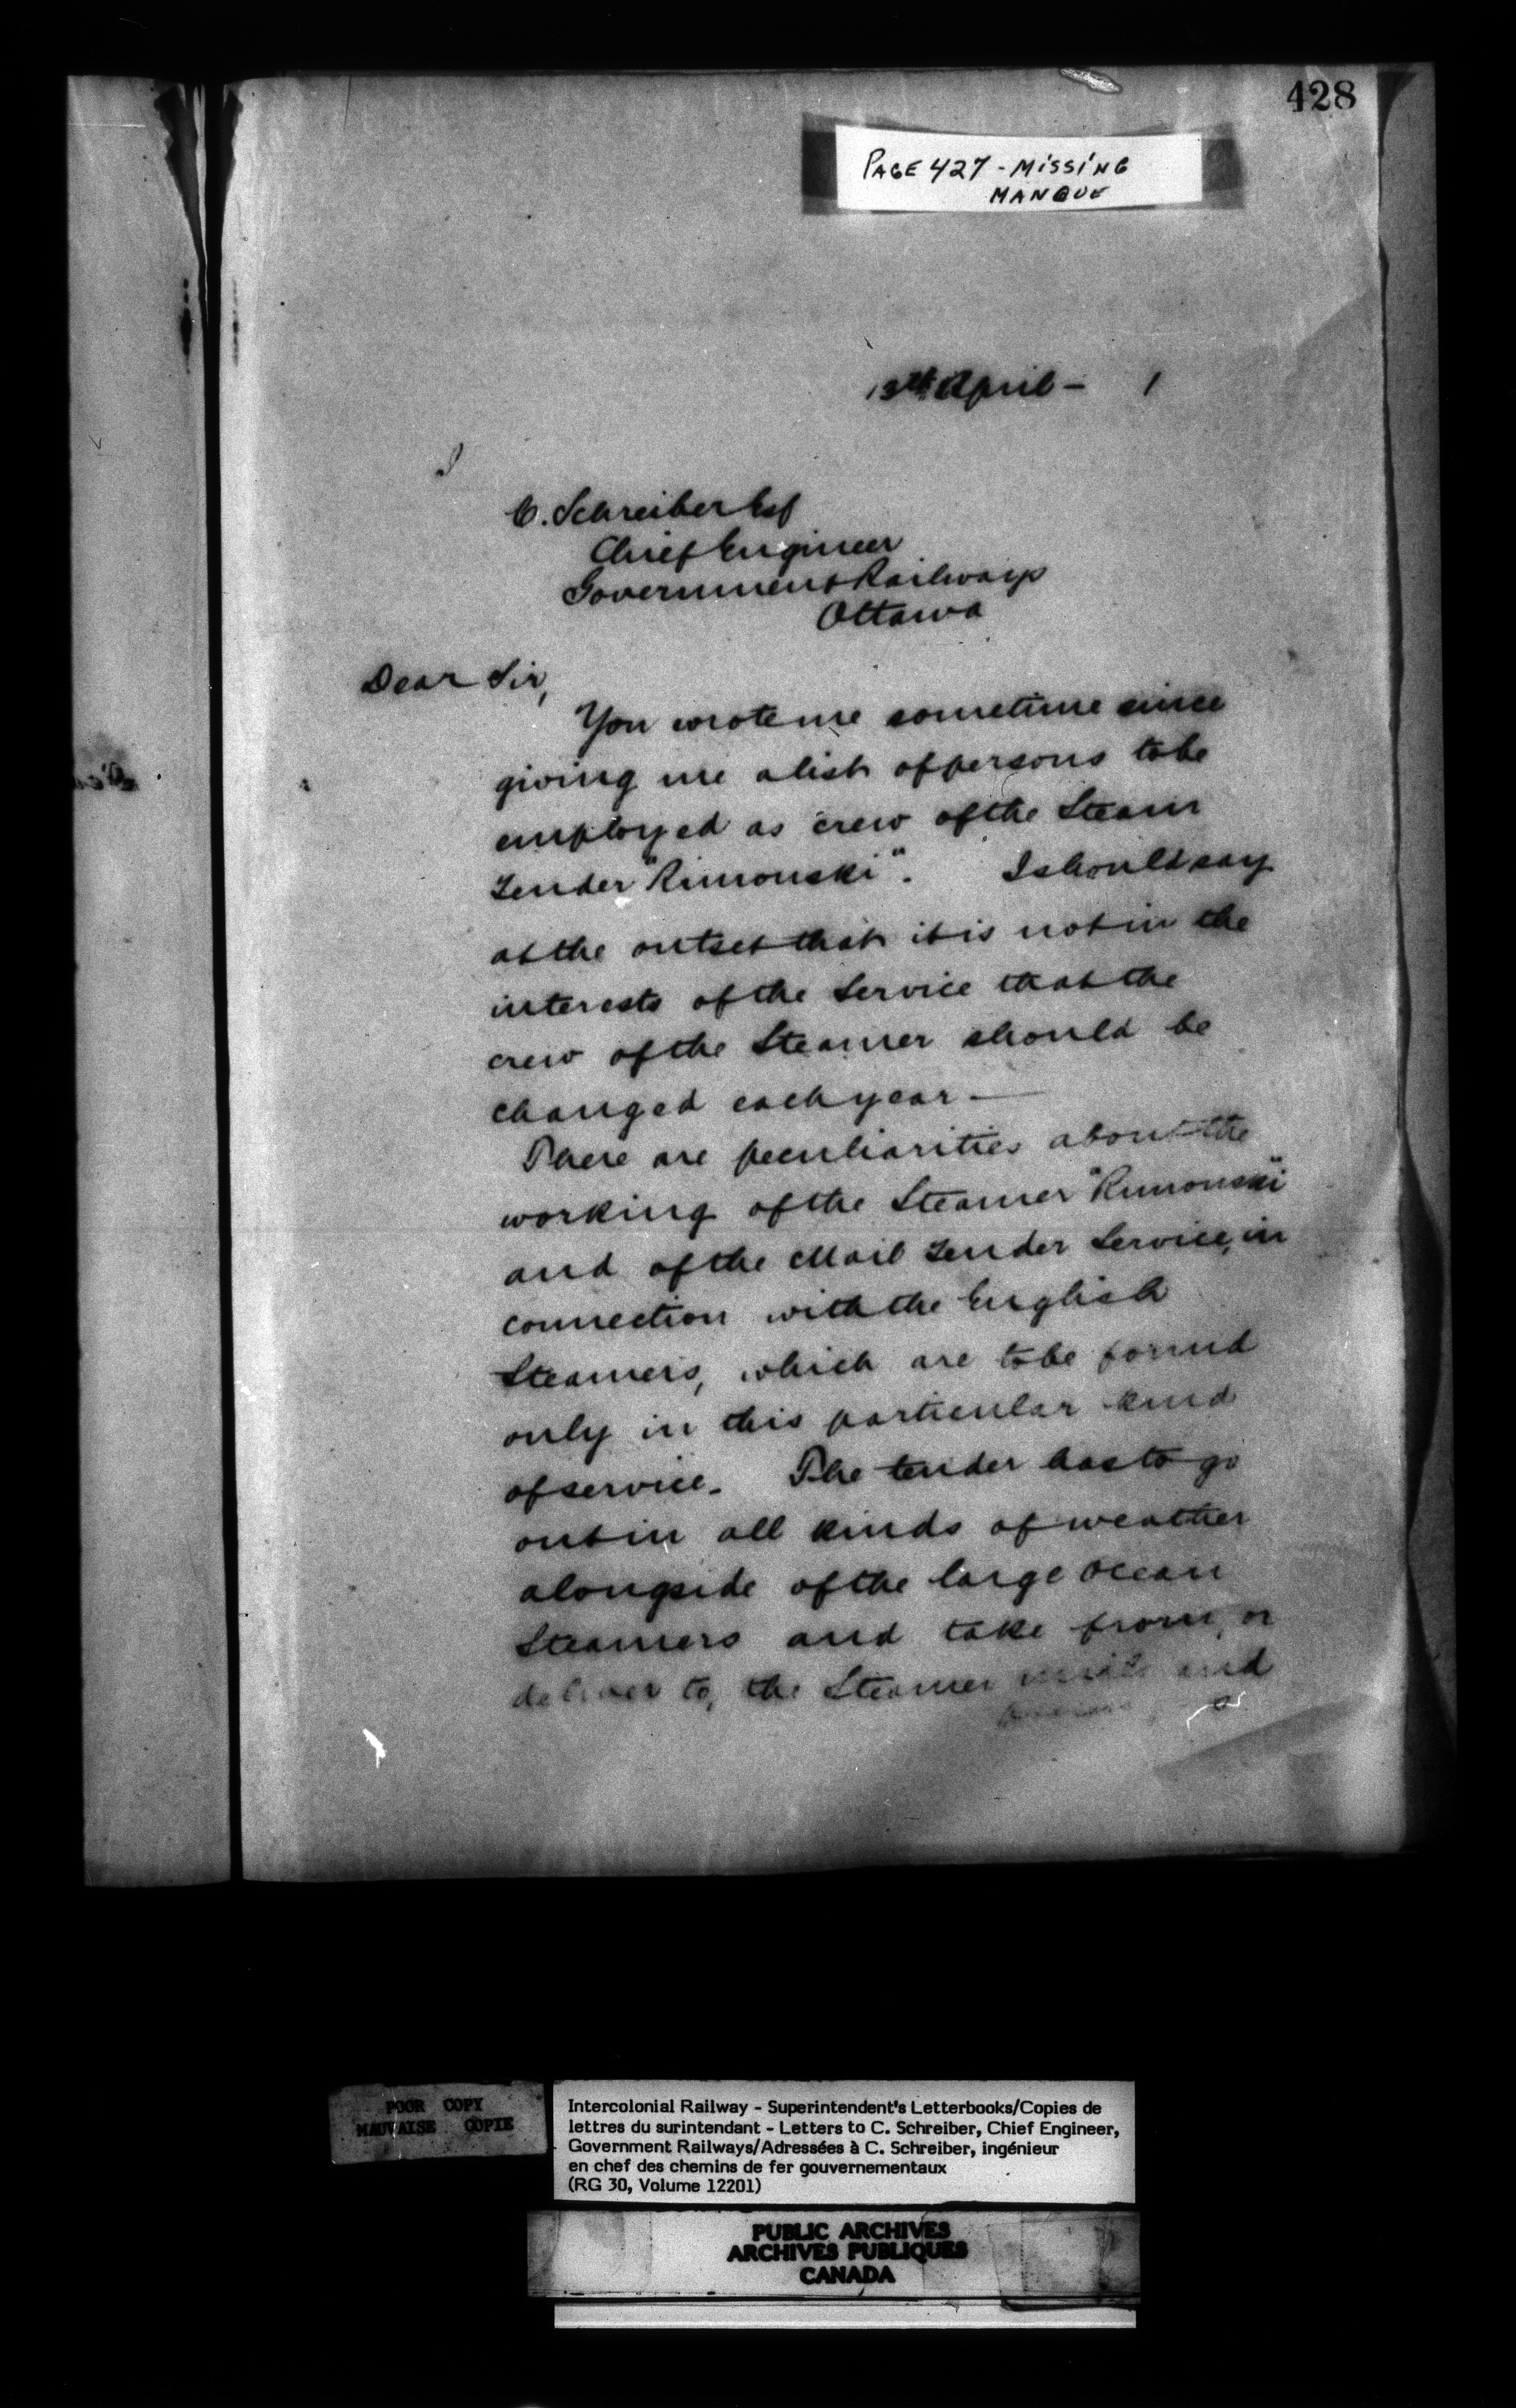 428
PAGE 427 - MISSING
MANQUE
13th April - 1
C. Schreiber Esq
Chief Engineer
Government Railways
Ottawa
Dear Sir,
You wrote me sometime since
giving me a list of persons to be
employed as crew of the Steam
Tender "Rimouski". I should say
at the outset that it is not in the
interests of the Service that the
crew of the Steamer should be
changed each year -
There are peculiarities about the
working of the Steamer "Rimouski"
and of the Mail Tender Service, in
connection with the English
Steamers, which are to be found
only in this particular kind
of service. The tender has to go
out in all kinds of weather
alongside of the large Ocean
Steamers and take from, or
deliver to, the Steamer mails and
POOR COPY
MAUVAISE COPIE
Intercolonial Railway - Superintendent's Letterbooks/Copies de
lettres du surintendant - Letters to C. Schreiber, Chief Engineer,
Government Railways/Adressées à C. Schreiber, ingénieur
en chef des chemins de fer gouvernementaux
(RG 30, Volume 12201)
PUBLIC ARCHIVES
ARCHIVES PUBLIQUES
CANADA